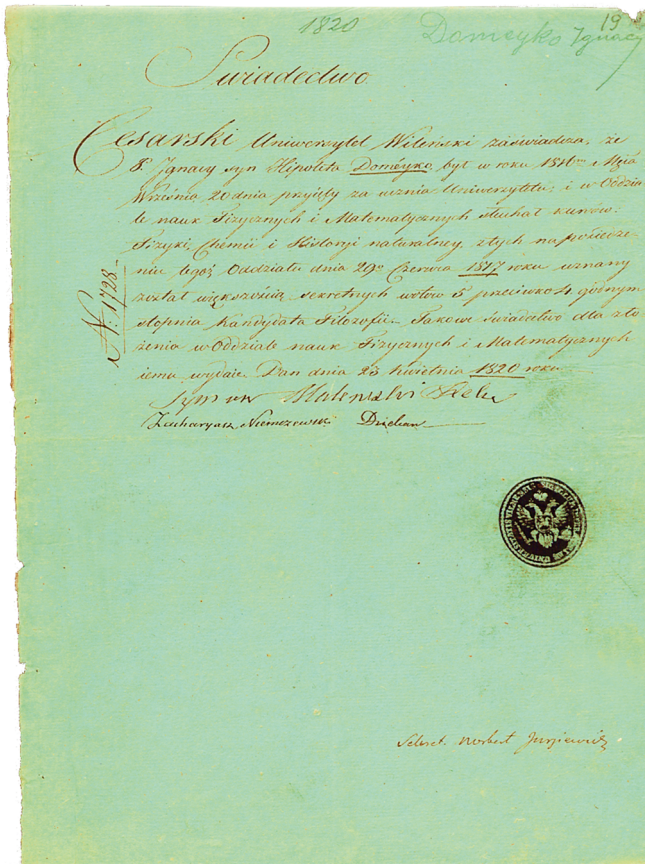 1820
19
Domeyko Ignacy
Swiadectwo
Cesarski Uniwersytet Wileński zaświadcza, że
Ignacy syn Hipolita Domeyko, był w roku 1816 Mca
Września 20 dnia przyięty za ucznia Uniwersytetu; i w Oddzia
le nauk Fizycznych i Matematycznych słuchał kursów:
Fizyki, Chemii i Historyi naturalney, z tych na posiedze-
niu tegoż Oddziału dnia 29 Czerwca 1817 roku uznany
został większością sekretnych wotów 5 przeciwko 4 godnym
stopnia Kandydata Filozofii. Takowe świadectwo dla zło
żenia w Oddziale nauk Fizycznych i Matematycznych
iemu wydaie. Dan dnia 23 Kwietnia 1820 roku
N. 1728
Szymon Malewski
Zacharyasz Niemczewski Dziekan
Sekret. Norbert Jurgiewicz